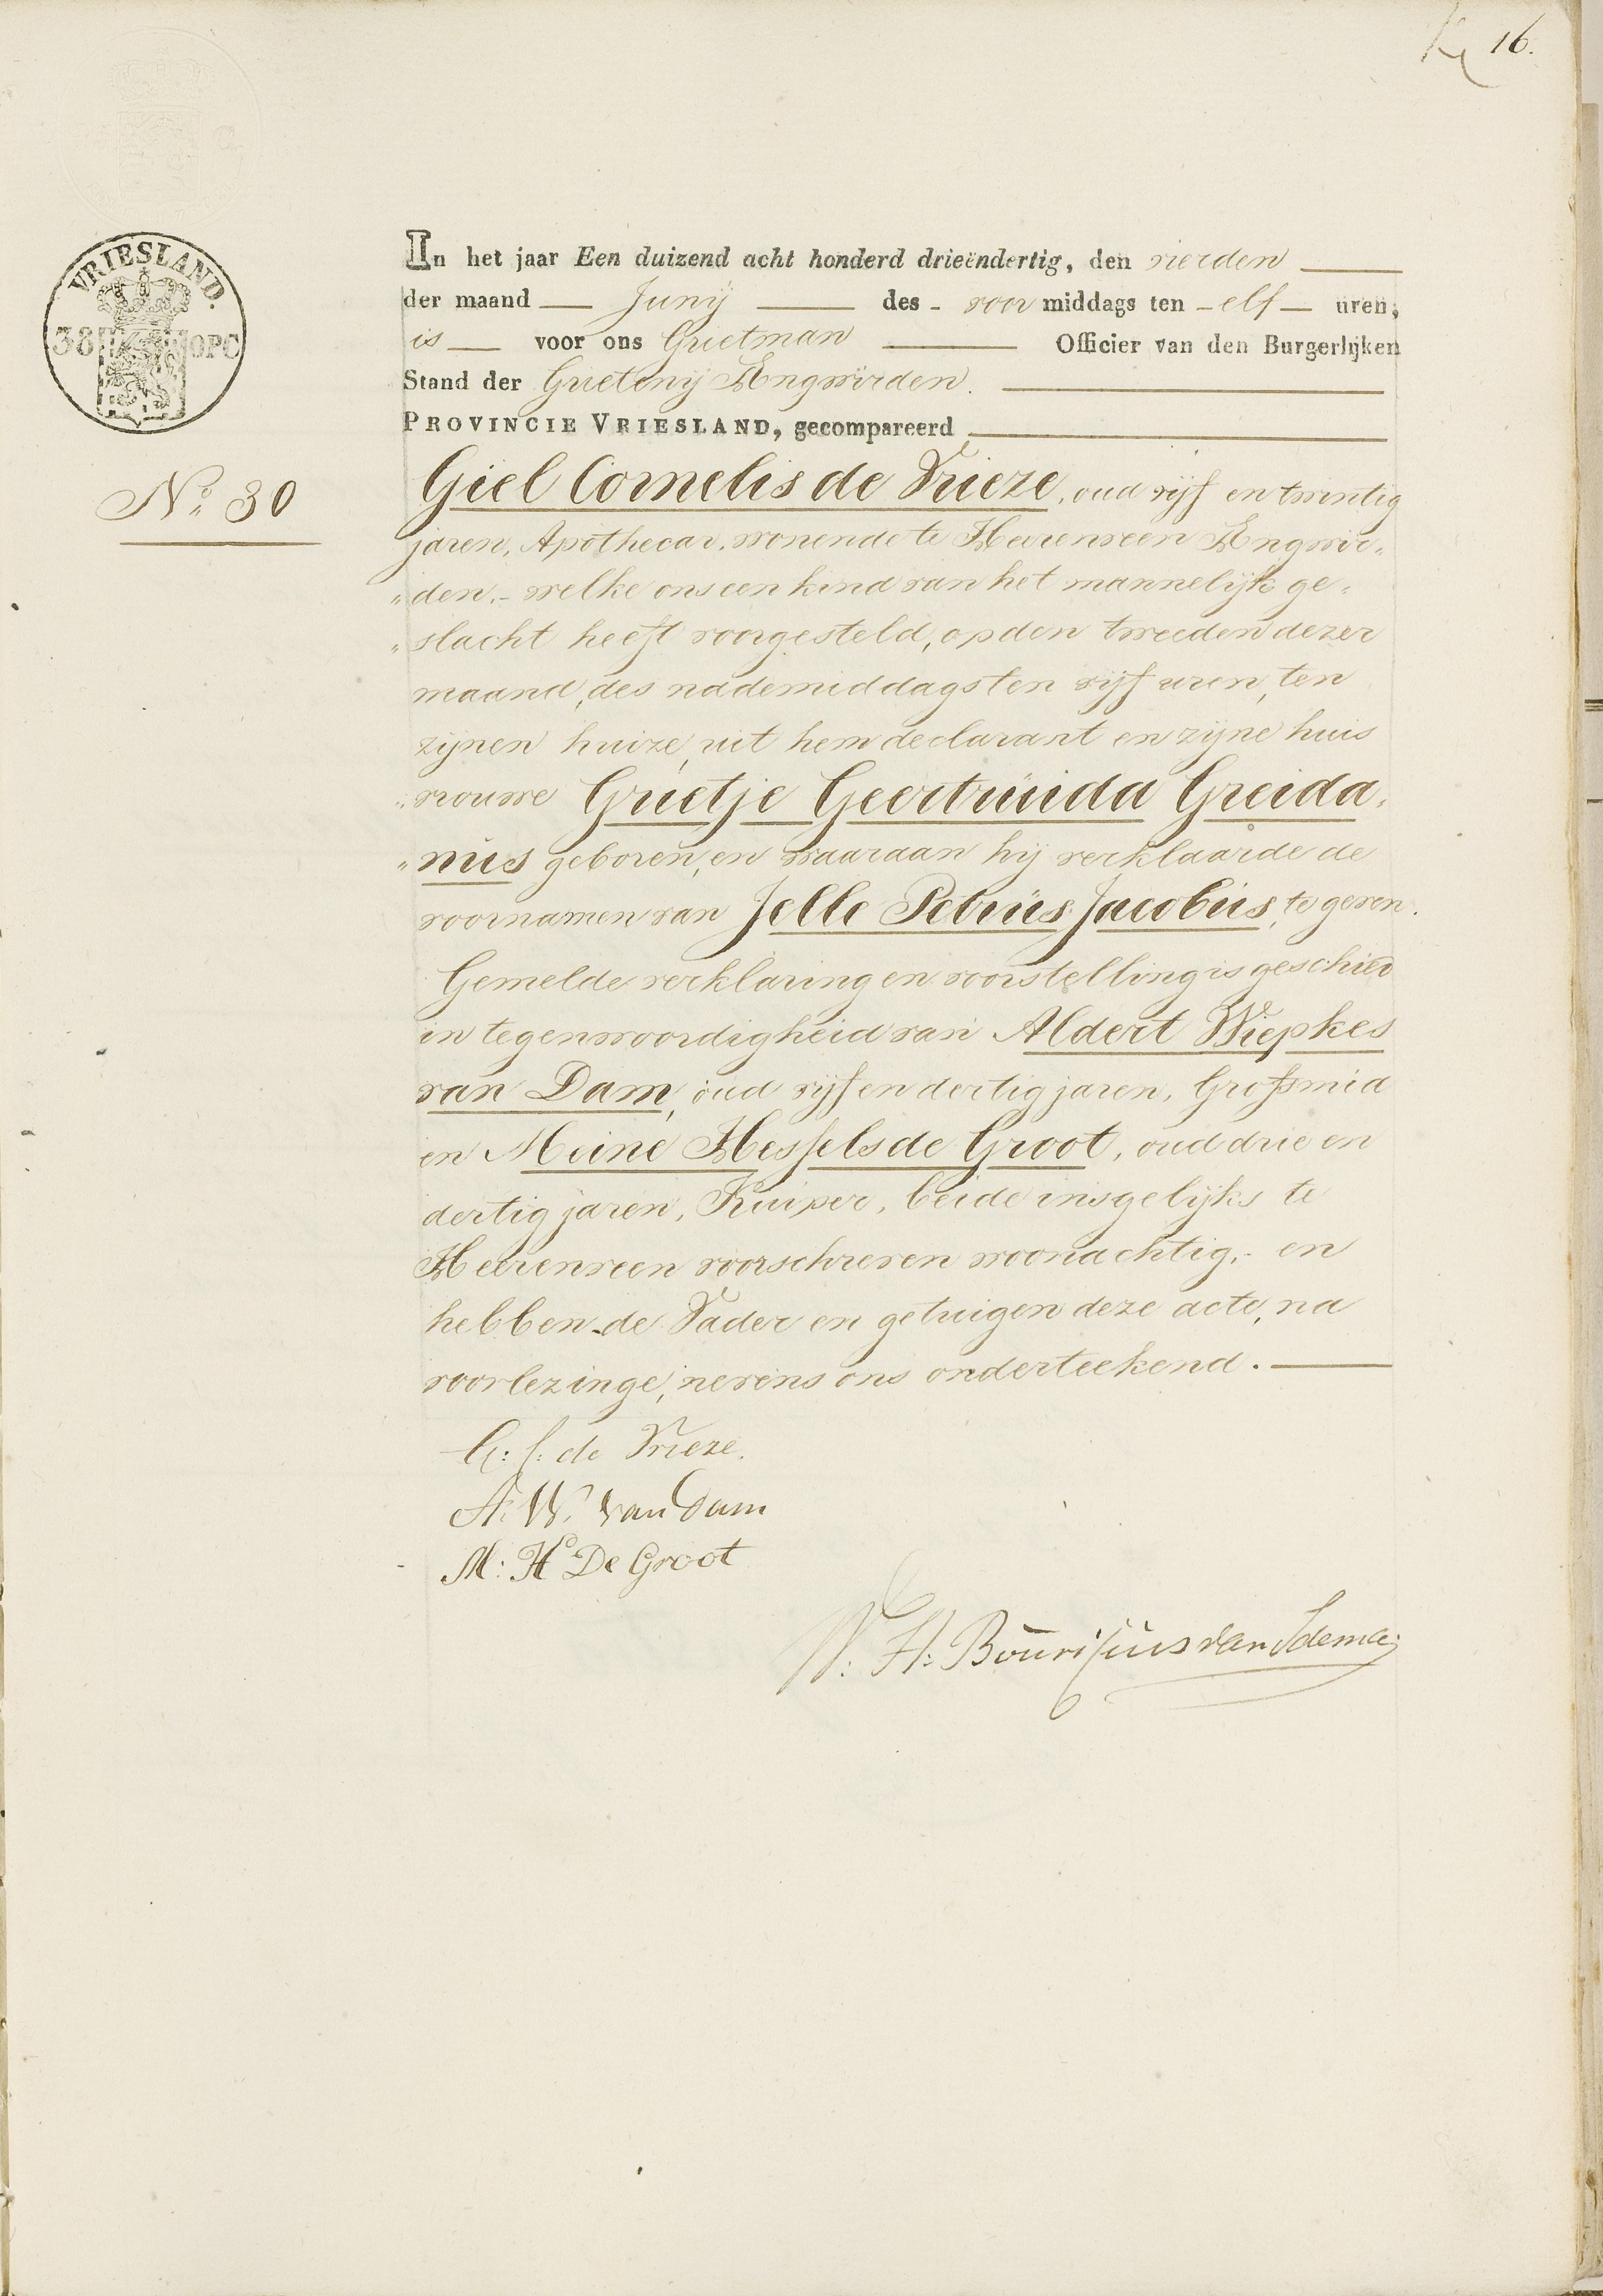 16.
VRIESLAND.
38 OPC
No. 30
In het jaar Een duizend acht honderd drieëndertig, den vierden
der maand Junij des voor middags ten elf uren,
is voor ons Grietman Officier van den Burgerlijken
Stand der Grietenij Ængwirden.
PROVINCIE VRIESLAND, gecompareerd
Giel Cornelis de Vrieze, oud vijf en twintig
jaren, Apothecar, wonende te Heerenveen Ængwir„
„den, - welke ons een kind van het mannelijk ge„
„slacht heeft voorgesteld, op den tweeden dezer
maand, des nademiddags ten vijf uren, ten
zijnen huize, uit hem declarant en zijne huis
„vrouwe Grietje Geertruida Greida„
„nus geboren, en waaraan hij verklaarde de
voornamen van Jelle Petrus Jacobus, te geven.
Gemelde verklaring en voorstelling is geschied
in tegenwoordigheid van Aldert Wiepkes
van Dam, oud vijf en dertig jaren, Grofsmid
en Meine Hessels de Groot, oud drie en
dertig jaren, Kuiper, beide insgelijks te
Heerenveen voorschreven woonachtig, - en
hebben de Vader en getuigen deze acte, na
voorlezinge, nevens ons onderteekend.
G: C: de Vrieze.
A: W. van Dam
M: H De Groot
W: H: Bouricius van Idema